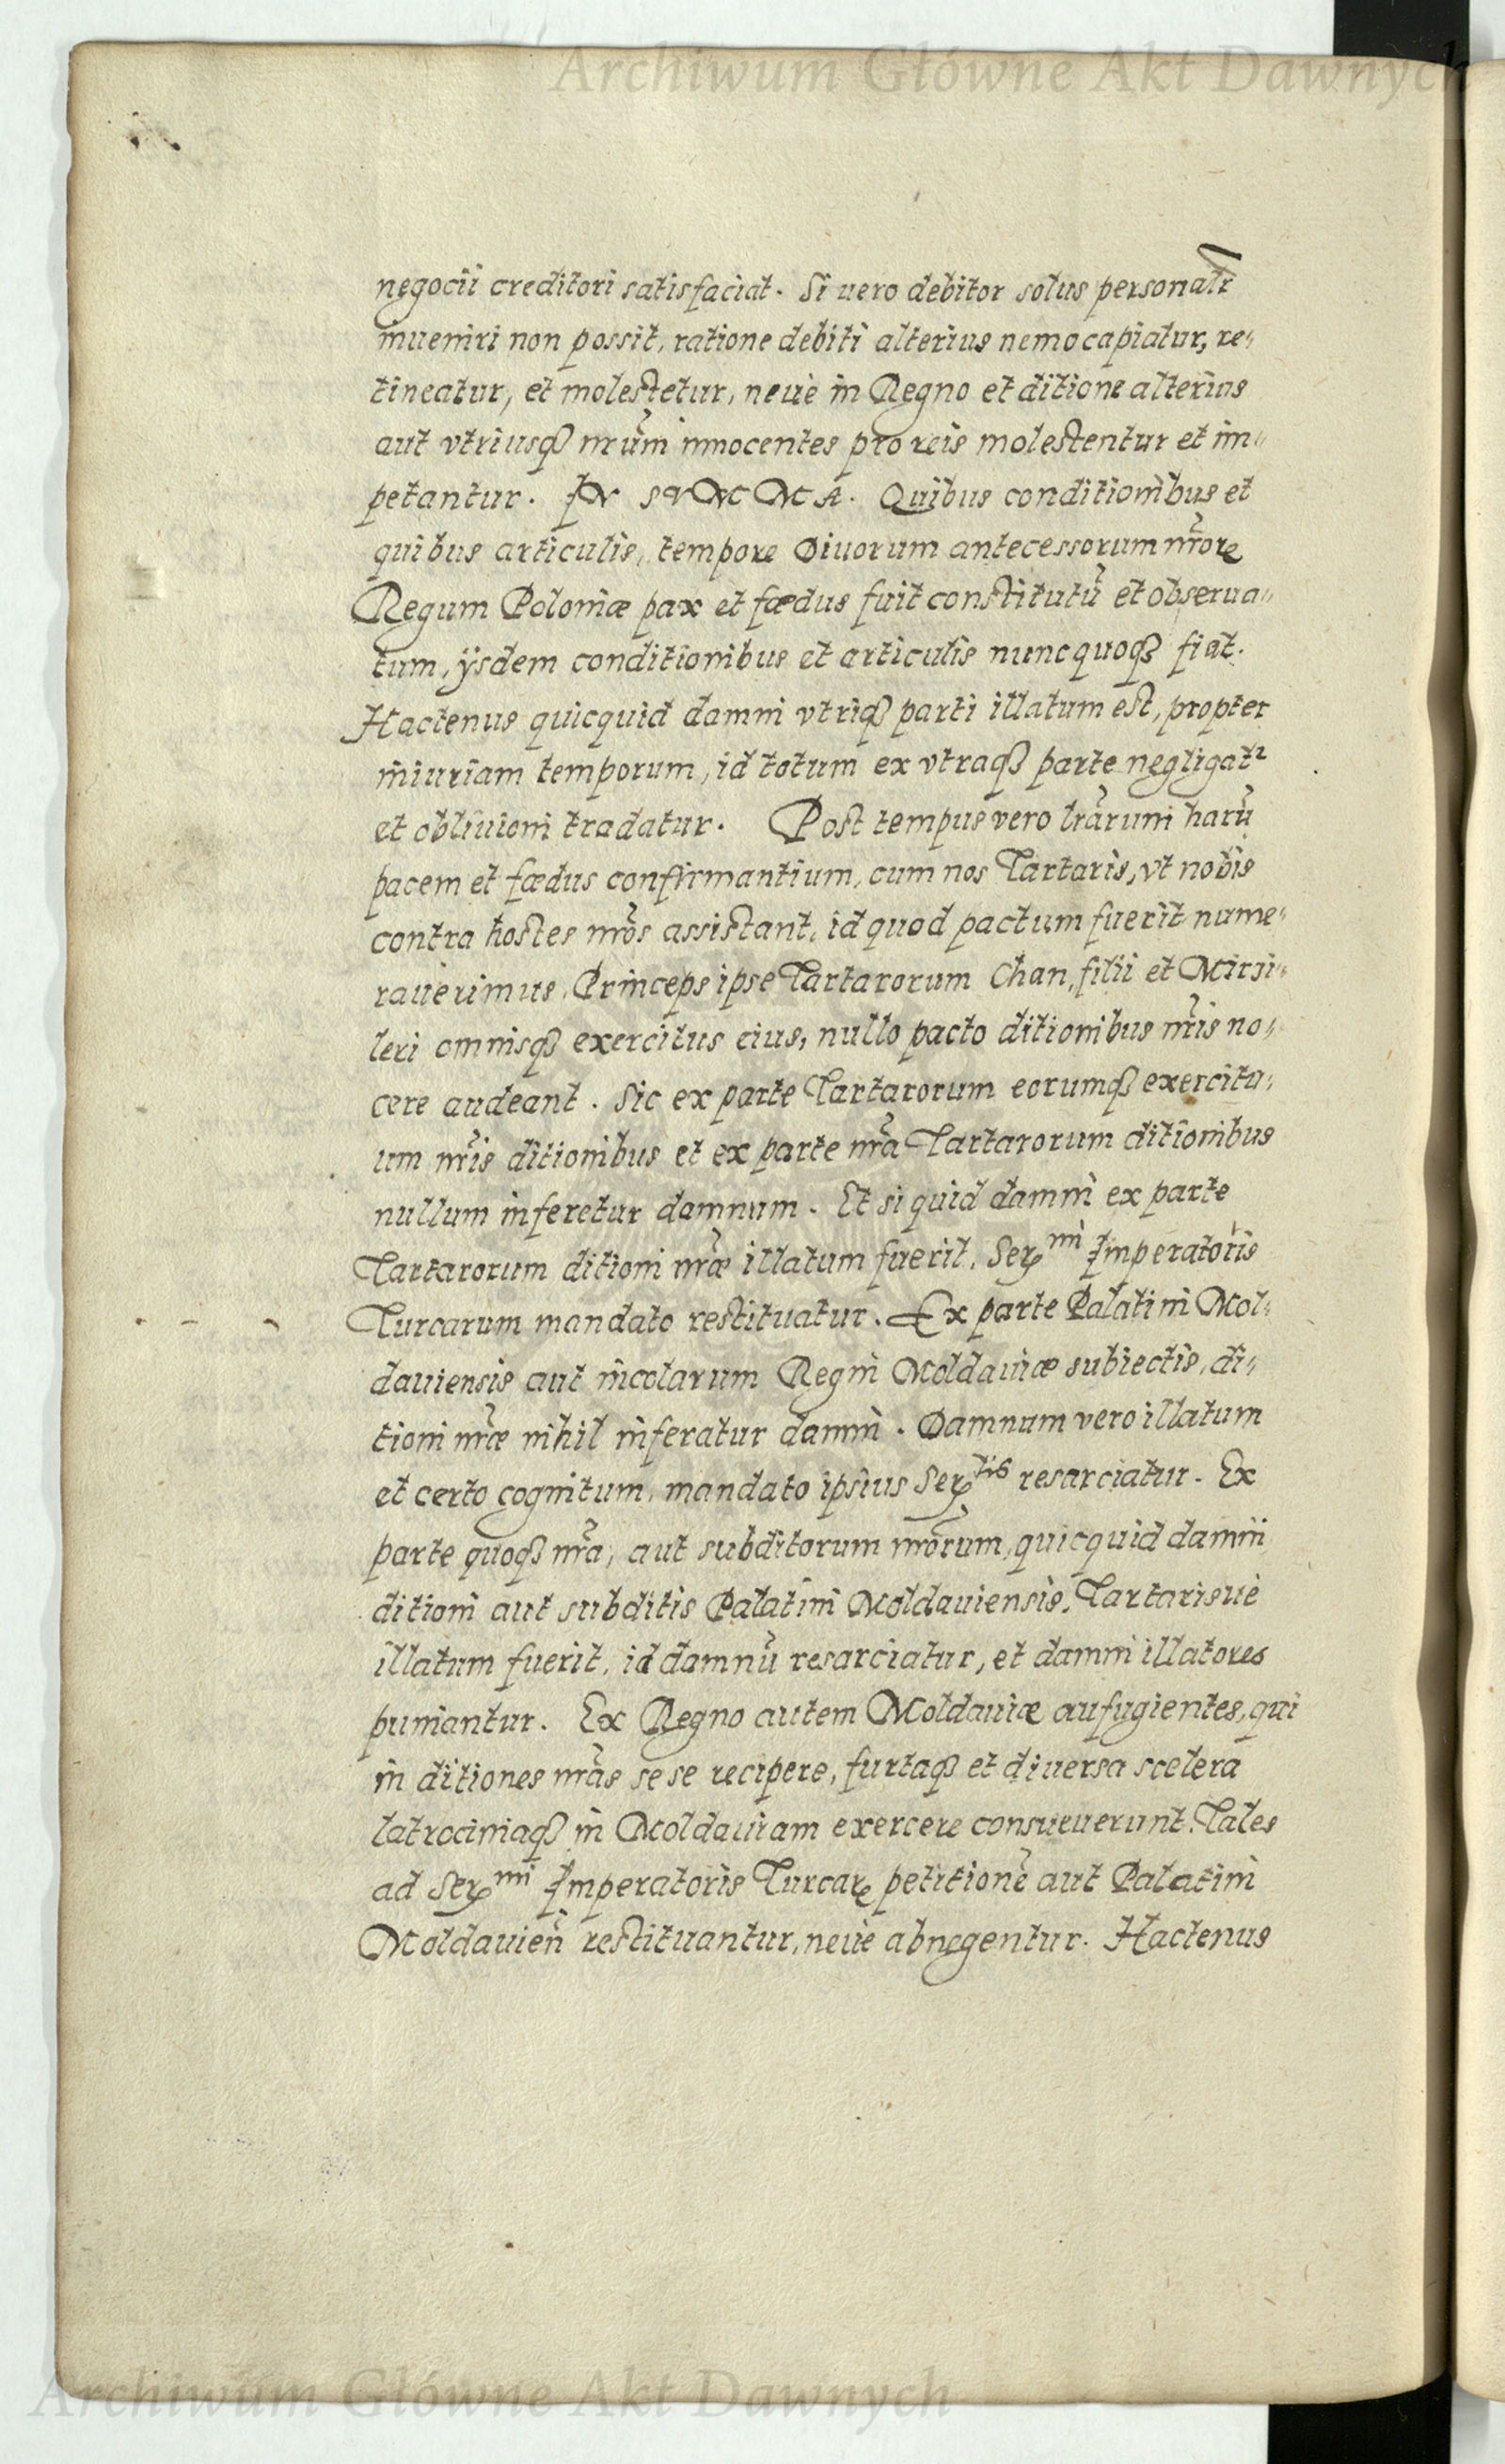 Archiwum Główne Akt Dawnych
negocii creditori satisfaciat. Si uero debitor solus personalr̄
inueniri non possit, ratione debiti alterius nemo capiatur, re„
tineatur, et molestetur, neuè in Regno et ditione alterius
aut vtriusqȝ nr̃um innocentes pro reis molestentur et im„
petantur. IN SVMMA. Quibus conditionibus et
quibus articulis, tempore Diuorum antecessorum nr̃orꝝ
Regum Poloniæ pax et fœdus fuit constitutũ et obserua„
tum, ÿsdem conditionibus et articulis nunc quoqȝ fiat.
Hactenus quicquid damni vtriqȝ parti illatum est, propter
iniuriam temporum, id totum ex vtraqȝ parte negligatᷣ
et obliuioni tradatur. Post tempus vero lr̃arum harũ
pacem et fœdus confirmantium, cum nos Tartaris, vt nobis
contra hostes nr̃os assistant, id quod pactum fuerit nume„
rauerimus, Princeps ipse Tartarorum Chan, filii et Mirsi„
leri omnisqȝ exercitus eius, nullo pacto ditionibus nr̃is no„
cere audeant. Sic ex parte Tartarorum eorumqȝ exercitu„
um nr̃is ditionibus et ex parte nr̃a Tartarorum ditionibus
nullum inferetur damnum. Et si quid damni ex parte
Tartarorum ditioni nr̃æ illatum fuerit, Serᵐⁱ Imperatoris
Turcarum mandato restituatur. Ex parte Palatini Mol„
dauiensis aut incolarum Regni Moldauiæ subiectis, di„
tioni nr̃æ nihil inferatur damni. Damnum vero illatum
et certo cognitum, mandato ipsius Serᵗⁱˢ resarciatur. Ex
parte quoqȝ nr̃a, aut subditorum nr̃orum, quicquid damni
ditioni aut subditis Palatini Moldauiensis, Tartarisuè
illatum fuerit, id damnũ resarciatur, et damni illatores
puniantur. Ex Regno autem Moldauiæ aufugientes, qui
in ditiones nr̃as se se recipere, furtaqȝ et diuersa scelera
latrociniaqȝ in Moldauiam exercere consueuerunt. Tales
ad Serᵐⁱ Imperatoris Turcarꝝ petitionẽ aut Palatini
Moldauien̄ restituantur, neuè abnegentur. Hactenus
Archiwum Główne Akt Dawnych